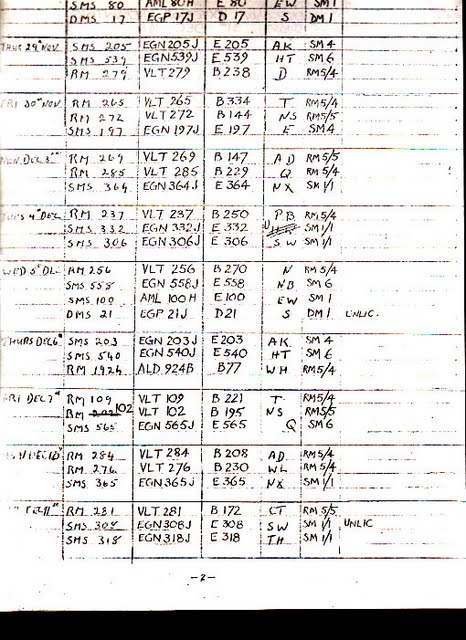 SMS 80 AML 80H E 80 EW SM 1
DMS 17 EGP 17J D 17 S DM 1
THUR 29th NOV SMS 205 EGN 205J E 205 AK SM 4
SMS 539 EGN 539J E 539 HT SM 6
RM 279 VLT 279 B 238 D RM5/4
FRI 30th NOV RM 265 VLT 265 B 334 T RM5/4
RM 272 VLT 272 B 144 NS RM5/5
SMS 197 EGN 197J E 197 E SM 4
MON DEC 3rd RM 269 VLT 269 B 147 AD RM5/5
RM 285 VLT 285 B 229 Q RM5/4
SMS 364 EGN 364J E 364 NX SM 1/1
TUES 4th DEC RM 237 VLT 237 B 250 PB RM5/4
SMS 332 EGN 332J E 332 SM 1/1
SMS 306 EGN 306J E 306 SW SM 1/1
WED 5th DEC RM 256 VLT 256 B 270 N RM 5/4
SMS 558 EGN 558J E 558 NB SM 6
SMS 100 AML 100H E 100 EW SM 1
DMS 21 EGP 21J D21 S DM 1 UNLIC.
THURS DEC 6th SMS 203 EGN 203J E 203 AK SM 4
SMS 540 EGN 540J E 540 HT SM 6
RM 1924 ALD 924B B77 WH RM5/4
FRI DEC 7th RM 109 VLT 109 B 221 T RM5/4
RM 102 VLT 102 B 195 NS RM5/5
SMS 565 EGN 565J E 565 Q SM 6
MON DEC 10th RM 284 VLT 284 B 208 AD RM5/4
RM 276 VLT 276 B 230 WL RM5/4
SMS 365 EGN 365J E 365 NX SM 1/1
RM 281 VLT 281 B 172 CT RM 5/5
SMS 308 EGN 308J E 308 SW SM 1/1 UNLIC
SMS 318 EGN 318J E 318 TH SM 1/1
-2-